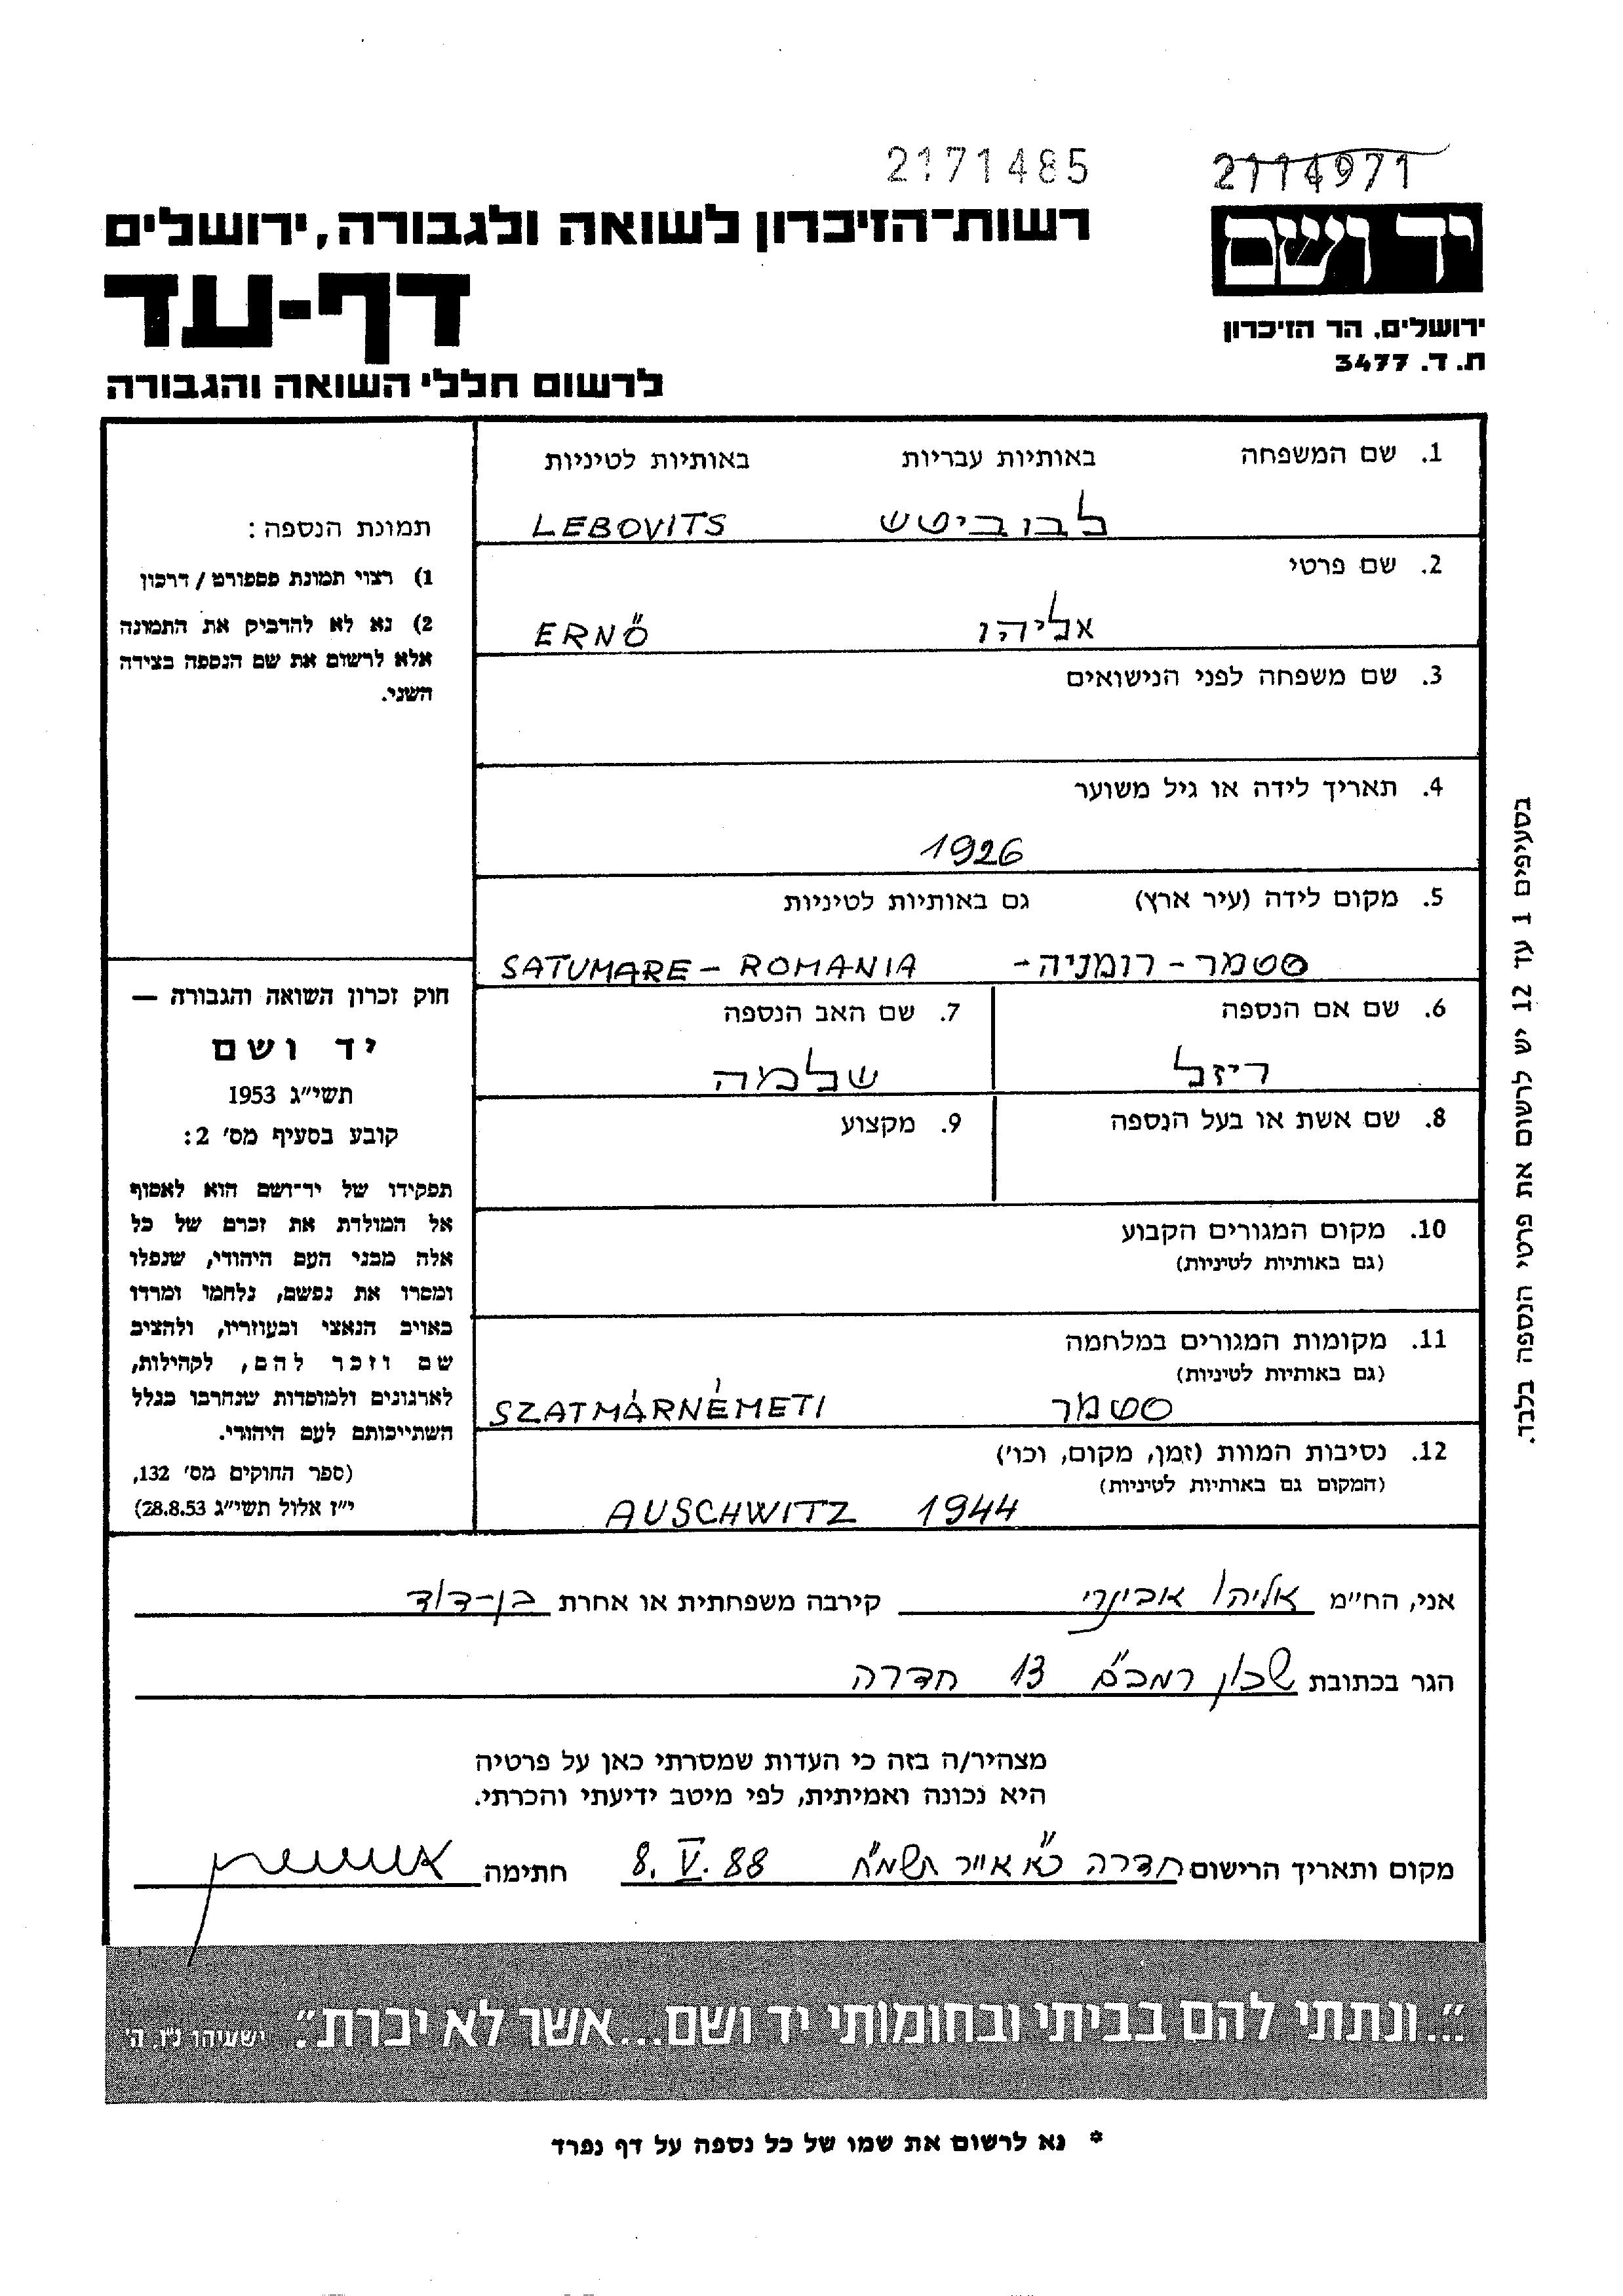 2171485
2114971
יד ושם
ירושלים, הר הזיכרון
ת.ד. 3477
רשות-הזיכרון לשואה ולגבורה, ירושלים
דף-עד
לרשום חללי השואה והגבורה
1. שם המשפחה באותיות עבריות באותיות לטיניות
לבוביטש LEBOVITS
2. שם פרטי
אליהו ERNŐ
3. שם משפחה לפני הנישואים
4. תאריך לידה או גיל משוער
1926
5. מקום לידה (עיר ארץ) גם באותיות לטיניות
סטמר - רומניה - SATUMARE - ROMANIA
6. שם אם הנספה 7. שם האב הנספה
ריזל שלמה
8. שם אשת או בעל הנספה 9. מקצוע
10. מקום המגורים הקבוע
(גם באותיות לטיניות)
11. מקומות המגורים במלחמה
(גם באותיות לטיניות)
סטמר SZATMÁRNÉMETI
12. נסיבות המוות (זמן, מקום, וכו')
(המקום גם באותיות לטיניות)
AUSCHWITZ 1944
תמונת הנספה:
1) רצוי תמונת פספורט / דרכון
2) נא לא להדביק את התמונה
אלא לרשום את שם הנספה בצידה
השני.
חוק זכרון השואה והגבורה —
יד ושם
תשי"ג 1953
קובע בסעיף מס' 2:
תפקידו של יד-ושם הוא לאסוף
אל המולדת את זכרם של כל
אלה מבני העם היהודי, שנפלו
ומסרו את נפשם, נלחמו ומרדו
באויב הנאצי ובעוזריו, ולהציב
שם וזכר להם, לקהילות,
לארגונים ולמוסדות שנחרבו בגלל
השתייכותם לעם היהודי.
(ספר החוקים מס' 132,
י"ז אלול תשי"ג 28.8.53)
בסעיפים 1 עד 12 יש לרשום את פרטי הנספה בלבד.
אני, הח"מ אליהו אבינרי קירבה משפחתית או אחרת בן-דוד
הגר בכתובת שכון רמב"ם 13 חדרה
מצהיר/ה בזה כי העדות שמסרתי כאן על פרטיה
היא נכונה ואמיתית, לפי מיטב ידיעתי והכרתי.
מקום ותאריך הרישום חדרה כ"א אייר תשמ"ח 8.V.88 חתימה
"...ונתתי להם בביתי ובחומותי יד ושם...אשר לא יכרת". ישעיהו נ"ו ה'
* נא לרשום את שמו של כל נספה על דף נפרד